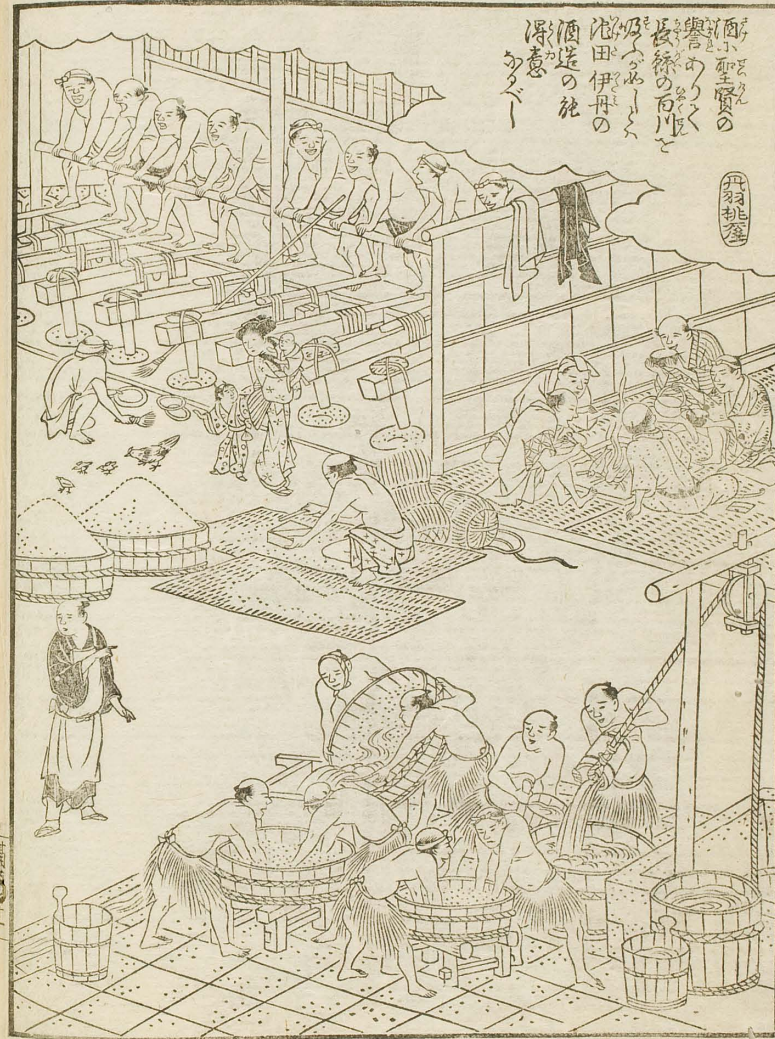 酒に聖賢の
譽ありて
長鯨の百川を
吸ふが如しとハ
池田伊丹の
酒造の能
得意
なるべし
丹羽桃渓